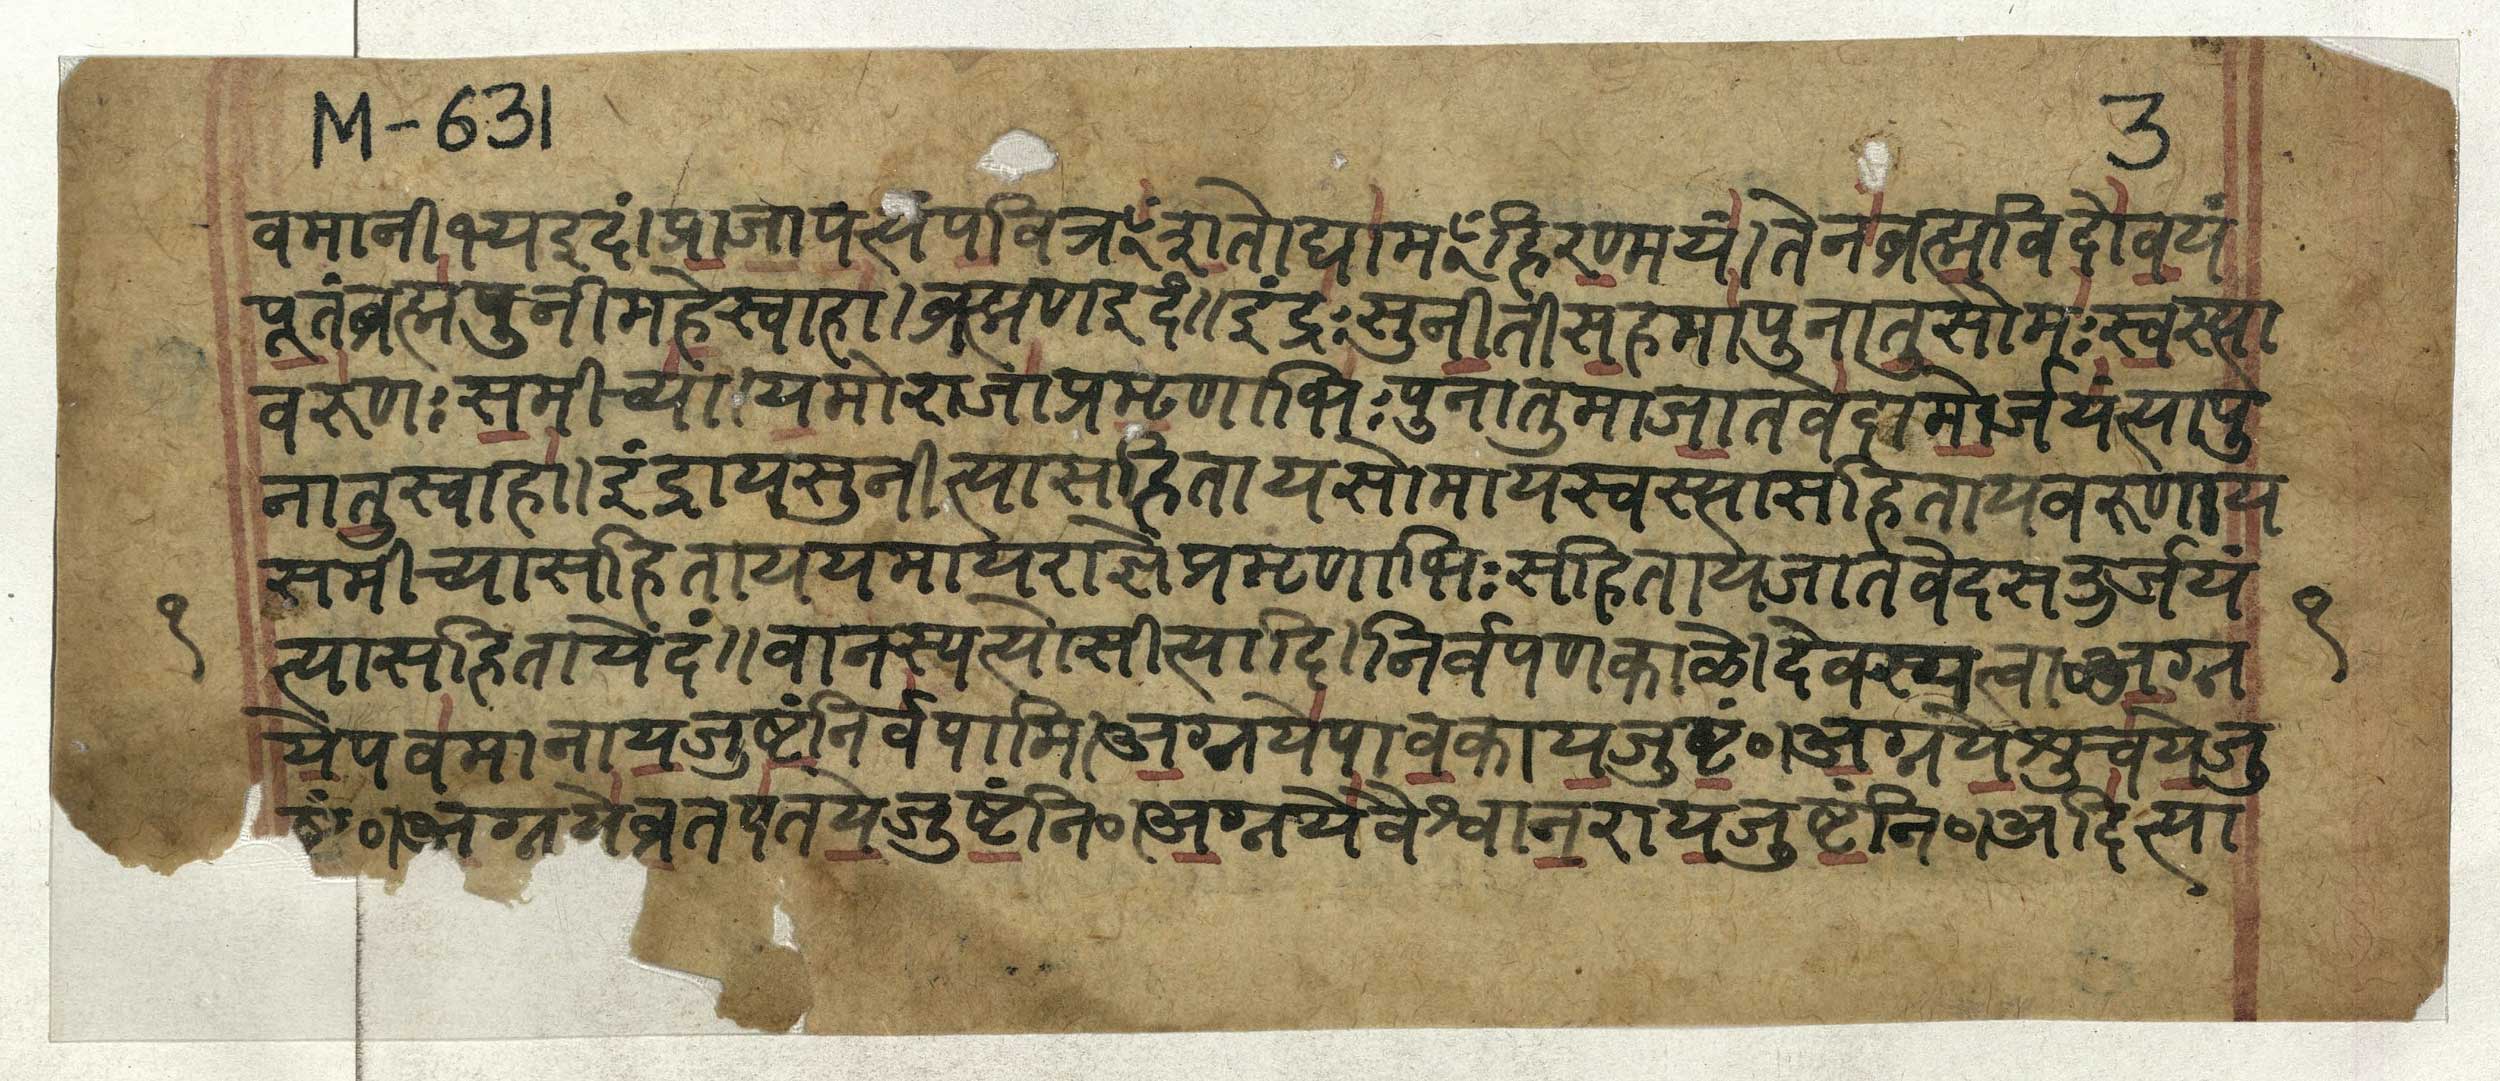 M-631 3
वमानीभ्यइदं।प्राजापत्यंपवित्रꣳशतोद्यामꣳहिरण्मयं।तेनब्रह्मविदोवयं
पूतंब्रह्मपुनीमहेस्वाहा।ब्रह्मणइदं॥इंद्रःसुनीतीसहमापुनातुसोमःस्वस्त्या
वरुणःसमीच्या।यमोराजाप्रमृणाभिःपुनातुमाजातवेदामोर्जयंत्यापु
नातुस्वाहा।इंद्रायसुनीत्यासहितायसोमायस्वस्त्यासहितायवरुणाय
समीच्यासहिताययमायराज्ञेप्रमृणाभिःसहितायजातवेदसऊर्जयं
त्यासहितायेदं॥वानस्पत्योसीत्यादि।निर्वपणकाळे।देवस्यत्वा०अग्न
१ १
येपवमानायजुष्टंनिर्वपामि।अग्नयेपावकायजुष्टं०।अग्नयेशुचयेजु
ष्टं०।अग्नयेव्रतपतयेजुष्टंनि०।अग्नयेवैश्वानरायजुष्टंनि०।अदित्या